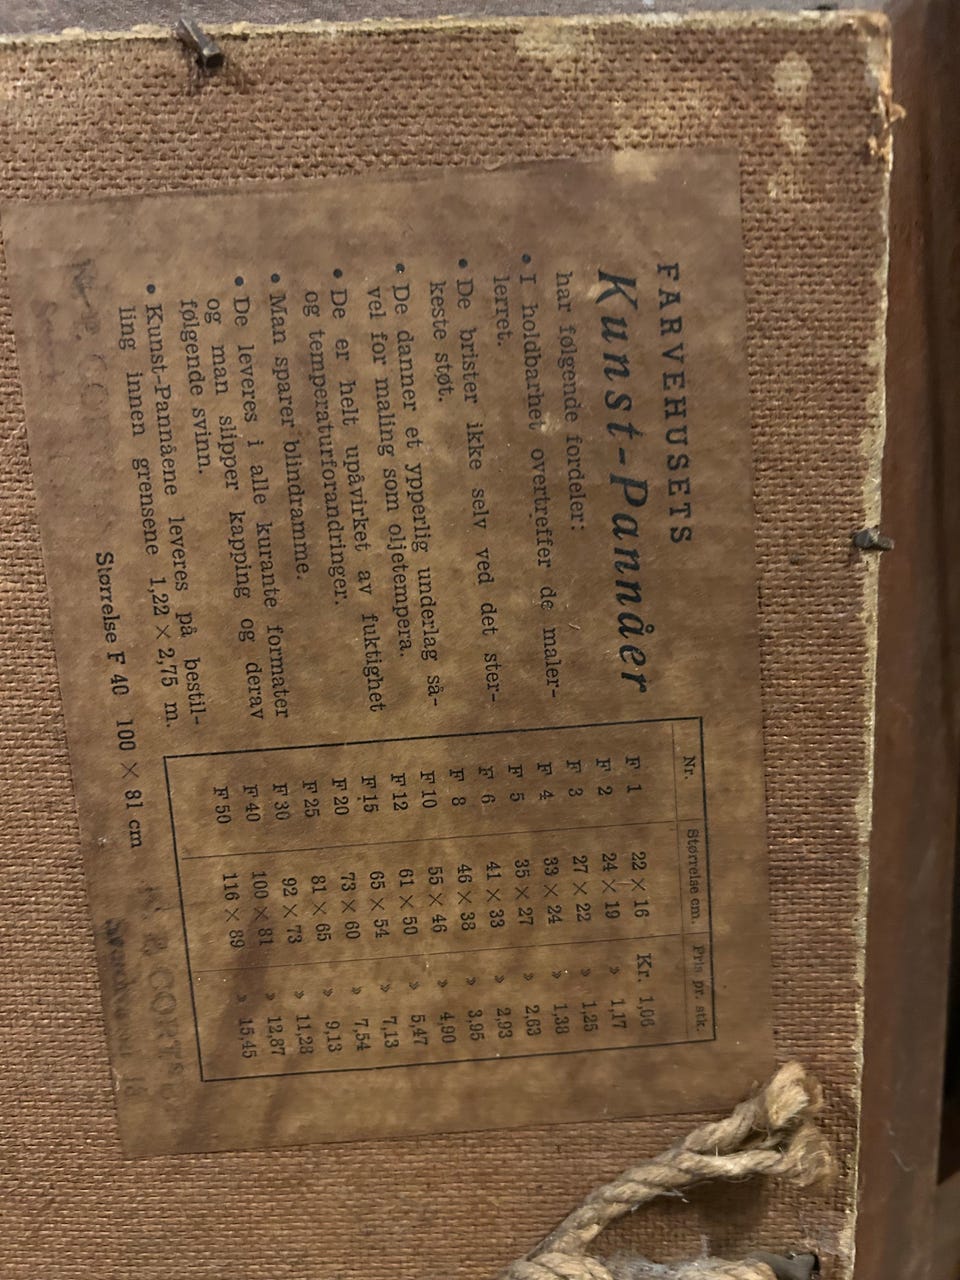 FARVEHUSETS
Kunst-Pannåer
har følgende fordeler:
• I holdbarhet overtreffer de maler-
lerret.
• De brister ikke selv ved det ster-
keste støt.
• De danner et ypperlig underlag så-
vel for maling som oljetempera.
• De er helt upåvirket av fuktighet
og temperaturforandringer.
• Man sparer blindramme.
• De leveres i alle kurante formater
og man slipper kapping og derav
følgende svinn.
• Kunst-Pannåene leveres på bestil-
ling innen grensene 1,22 × 2,75 m.
Størrelse F 40 100 × 81 cm
Nr. Størrelse cm. Pris pr. stk.
F 1 22 × 16 Kr. 1,06
F 2 24 × 19 » 1,17
F 3 27 × 22 » 1,25
F 4 33 × 24 » 1,38
F 5 35 × 27 » 2,63
F 6 41 × 33 » 2,93
F 8 46 × 38 » 3,95
F 10 55 × 46 » 4,90
F 12 61 × 50 » 5,47
F 15 65 × 54 » 7,13
F 20 73 × 60 » 7,54
F 25 81 × 65 » 9,13
F 30 92 × 73 » 11,28
F 40 100 × 81 » 12,87
F 50 116 × 89 » 15,45